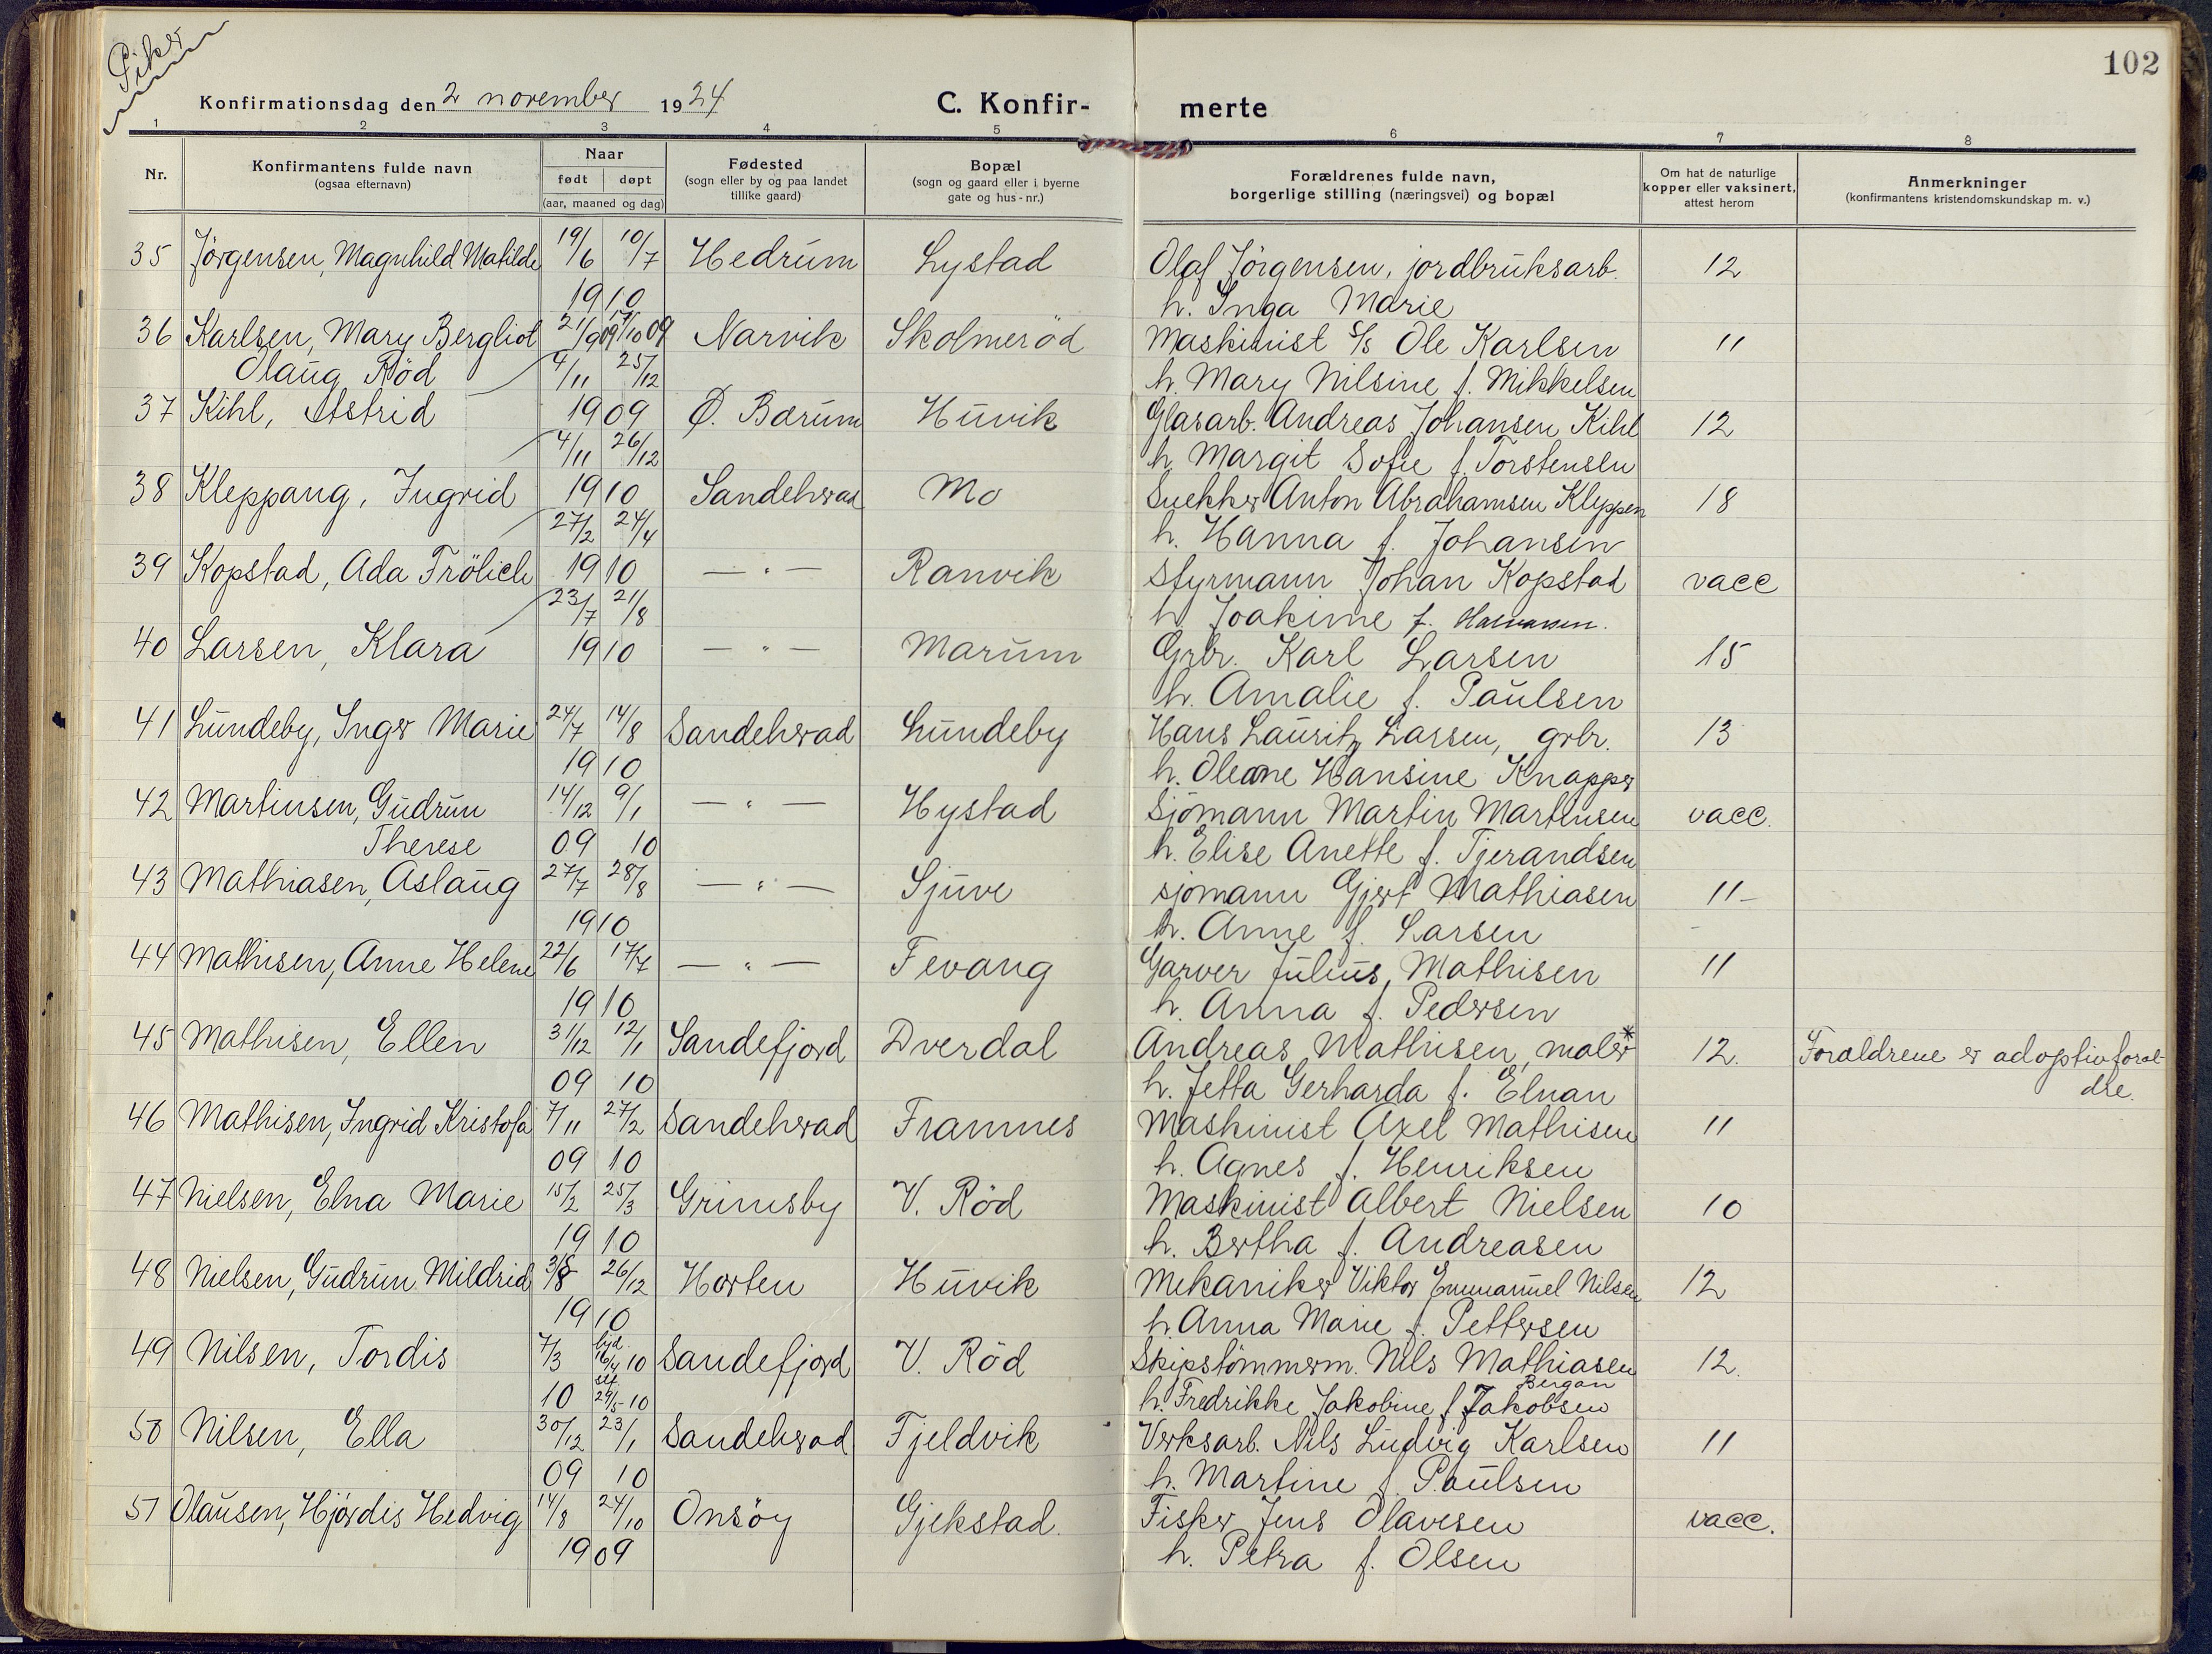 Piker
102
Konfirmationsdag den 2 november 1924 C. Konfir- merte
1 2 3 4 5 6 7 8
Nr. Konfirmantens fulde navn (ogsaa efternavn) Naar født døpt (aar, maaned og dag) Fødested (sogn eller by og paa landet tillike gaard) Bopæl (sogn og gaard eller i byerne gate og hus-nr.) Forældrenes fulde navn, borgerlige stilling (næringsvei) og bopæl Om hat de naturlige kopper eller vaksinert, attest herom Anmerkninger (konfirmantens kristendomskundskap m. v.)
35 Jörgensen, Magnhild Matilde 19/6 10/7 Hedrum Lystad Olaf Jörgensen, jordbruksarb. 12
1910 h. Inga Marie
36 Karlsen, Mary Bergliot 21/9 09 /10 09 Narvik Skolmeröd Maskinist S/s Ole Karlsen 11
Olaug Röd 4/11 25/12 h. Mary Nilsine f. Mikkelsen
37 Kihl, Astrid 1909 Ø. Bærum Huvik Glasarb. Andreas Johansen Kihl 12
4/11 26/12 h. Margit Sofie f. Torstensen
38 Kleppang, Ingrid 1910 Sandeherad Mo Snekker Anton Abrahamsen Kleppen 18
27/2 24/4 h. Hanna f. Johansen
39 Kopstad, Ada Frölich 1910 — " — Ranvik Styrmann Johan Kopstad vacc
23/7 21/8 h Joakime f.
40 Larsen, Klara 1910 — " — Marum Grbr. Karl Larsen 15
h. Amalie f. Paulsen
41 Lundeby, Inger Marie 24/7 14/8 Sandeherad Lundeby Hans Lauritz Larsen, grbr. 13
1910 h. Oleane Hansine Knapper
42 Martinsen, Gudrun 14/12 9/1 — " — Hystad Sjömann Martin Martinsen vacc.
Therese 09 10 h. Elise Anette f. Tjerandsen
43 Mathiasen, Aslaug 27/7 28/8 — " — Sjuve sjömann Gjert Mathiasen 11-
1910 h. Anne f. Larsen
44 Mathisen, Anne Helene 22/6 17/7 — " — Fevang Garver Julius Mathisen 11
1910 h. Anna f. Pedersen
45 Mathisen, Ellen 31/12 12/1 Sandefjord Dverdal Andreas Mathisen, maler* 12. Forældrene er adoptivforæl-
09 10 h. Jetta Gerharda f. Elnan dre.
46 Mathisen, Ingrid Kristofa 7/11 27/2 Sandeherad Framnes Maskinist Axel Mathisen 11
09 10 h. Agnes f. Henriksen
47 Nielsen, Elna Marie 15/2 25/3 Grimsby V. Röd Maskinist Albert Nielsen 10
1910 h. Bertha f. Andreasen
48 Nielsen, Gudrun Mildrid 26/12 Horten Huvik Mekaniker Viktor Emmanuel Nilsen 12
1910 h. Anna Marie f. Pettersen
49 Nilsen, Tordis 7/3 hjd. 16/4 10 Sandefjord V. Röd Skipstömmerm. Nils Mathiasen 12.
Bergan
10 stf. 29/5-10 h. Fredrikke Jakobine f. Jakobsen
50 Nilsen, Ella 30/12 23/1 Sandeherad Fjeldvik Verksarb. Nils Ludvig Karlsen 11
09 10 h. Martine f. Paulsen
51 Olausen, Hjördis Hedvig 14/8 24/10 Onsöy Gjekstad. Fisker Jens Olavesen vacc.
1909 h. Petra f. Olsen